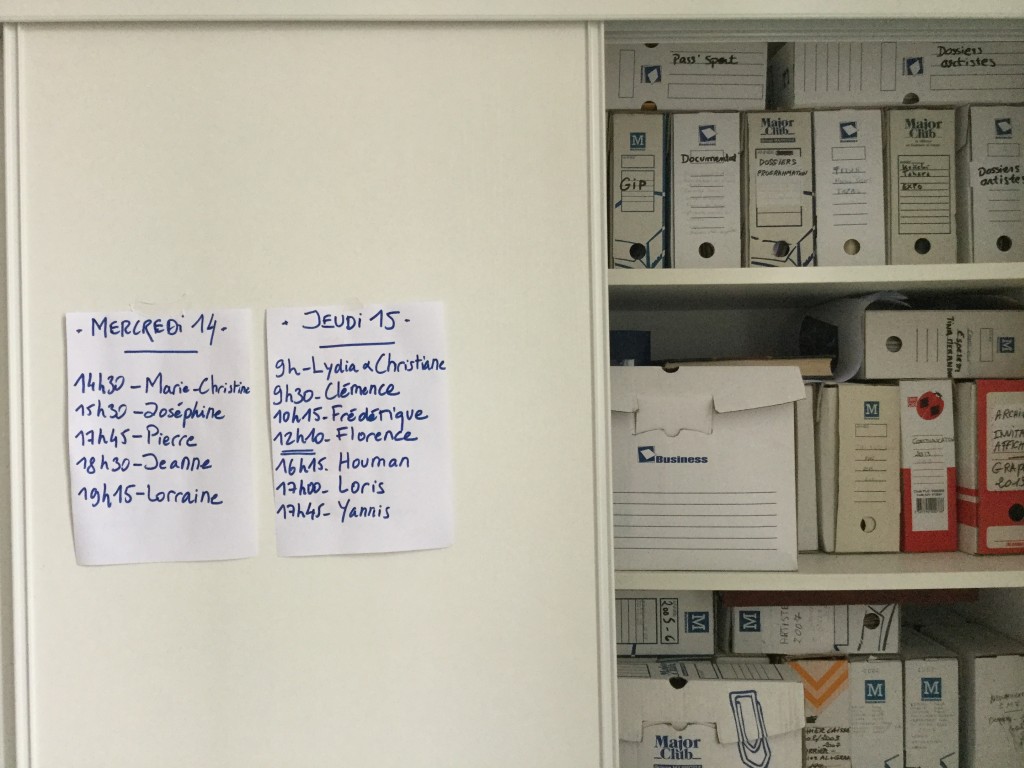 - MERCREDI 14 -
14h30 - Marie-Christine
15h30 - Joséphine
17h45 - Pierre
18h30 - Jeanne
19h15 - Lorraine
- JEUDI 15 -
9h - Lydia & Christiane
9h30 - Clémence
10h15 - Frédérique
12h10 - Florence
16h15. Houman
17h00 - Loris
17h45 - Yannis
Pass'Sport
Dossiers
artistes
M
GIP
Documentat°
Major
Club
DOSSIERS
PROGRAMMATION
Major
Club
EXPO
Dossiers
artistes
M
Business
M
COMMUNICATION
2013
ARCHI
INVITA
AFFICH
GRAP
2015
2005-6
M
M
2007
Major
Club
M
M